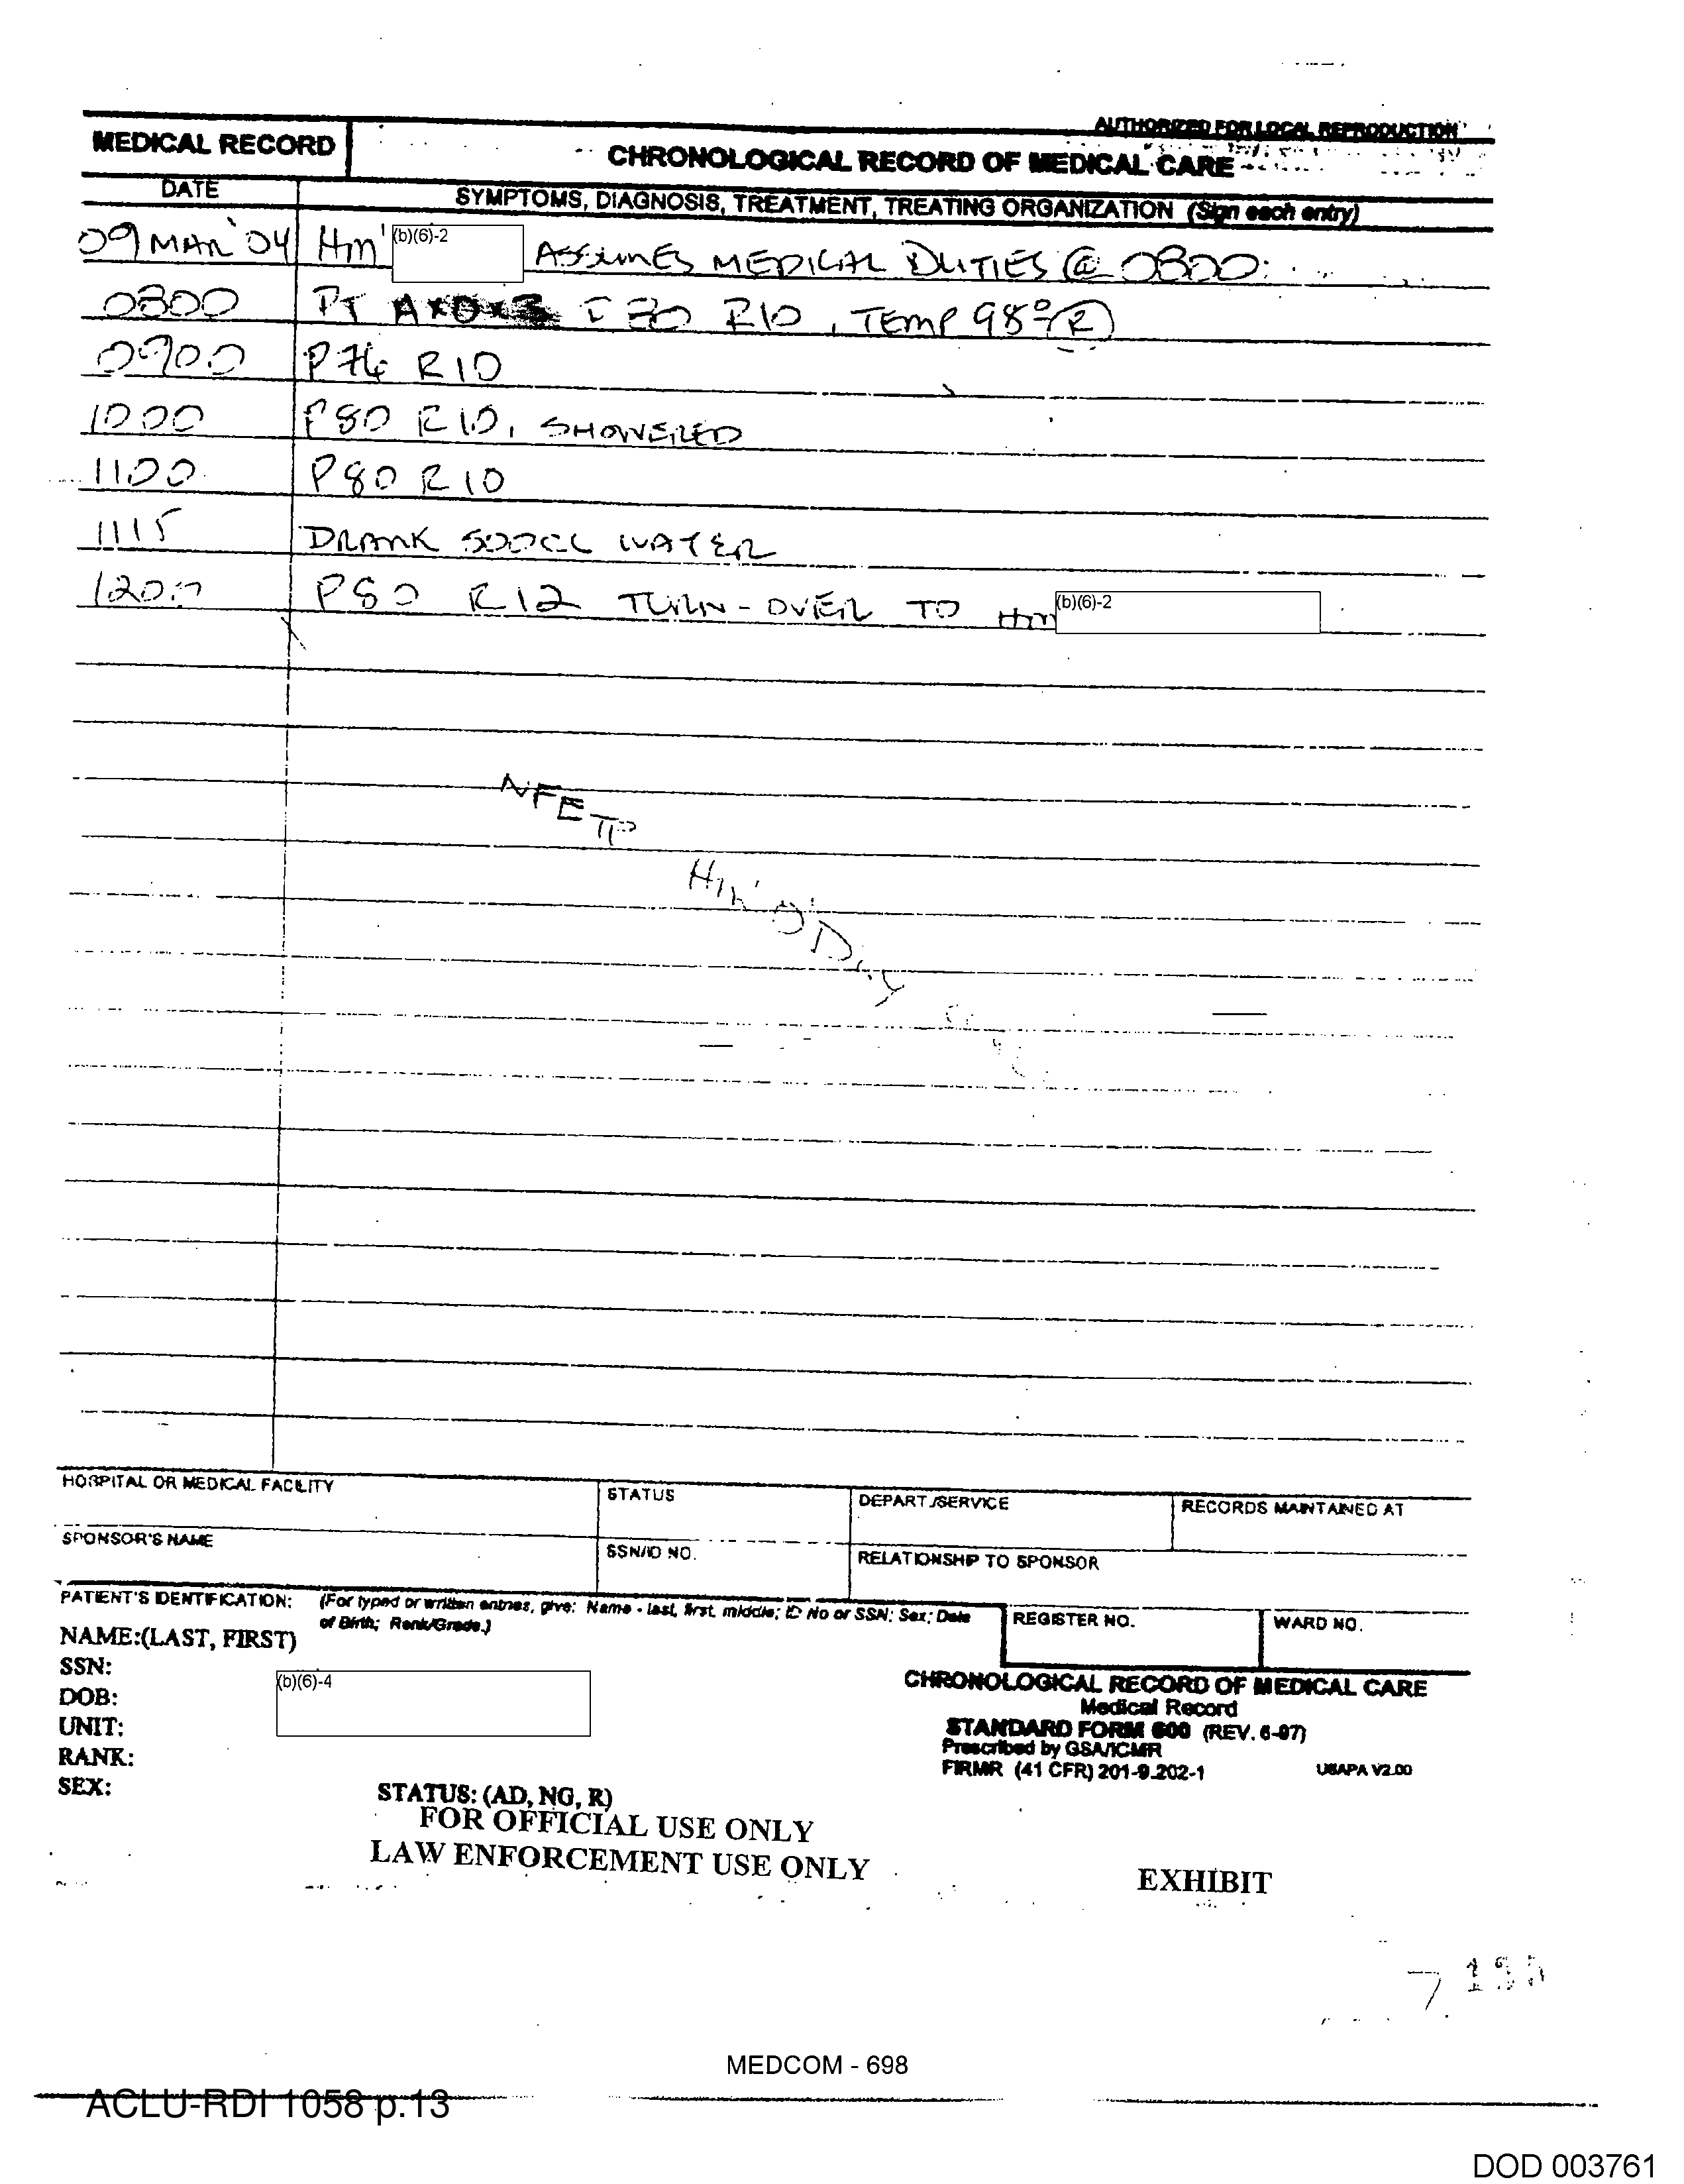 AUTHORIZED FOR LOCAL REPRODUCTION
MEDICAL RECORD
CHRONOLOGICAL RECORD OF MEDICAL CARE
DATE
SYMPTOMS, DIAGNOSIS, TREATMENT, TREATING ORGANIZATION (Sign each entry)
09 MAR '04 HM1 (b)(6)-2 ASSUMES MEDICAL DUTIES @ 0800
0800 PT A×O×3 R10, TEMP 98° (R)
0900 P 76 R10
1000 P80 R10, SHOWERED
1100 P80 R10
1115 DRANK 500CC WATER
1200 P80 R12 TURN-OVER TO HM (b)(6)-2
NFE TP
HOSPITAL OR MEDICAL FACILITY
STATUS
DEPART./SERVICE
RECORDS MAINTAINED AT
SPONSOR'S NAME
SSN/ID NO.
RELATIONSHIP TO SPONSOR
PATIENT'S IDENTIFICATION: (For typed or written entries, give: Name - last, first, middle; ID No or SSN; Sex; Date
of Birth; Rank/Grade.)
REGISTER NO.
WARD NO.
NAME:(LAST, FIRST)
SSN:
DOB:
UNIT:
RANK:
SEX:
(b)(6)-4
STATUS: (AD, NG, R)
CHRONOLOGICAL RECORD OF MEDICAL CARE
Medical Record
STANDARD FORM 600 (REV. 6-97)
Prescribed by GSA/ICMR
FIRMR (41 CFR) 201-9.202-1
USAPA V2.00
FOR OFFICIAL USE ONLY
LAW ENFORCEMENT USE ONLY
EXHIBIT
7
MEDCOM - 698
ACLU-RDI 1058 p.13
DOD 003761